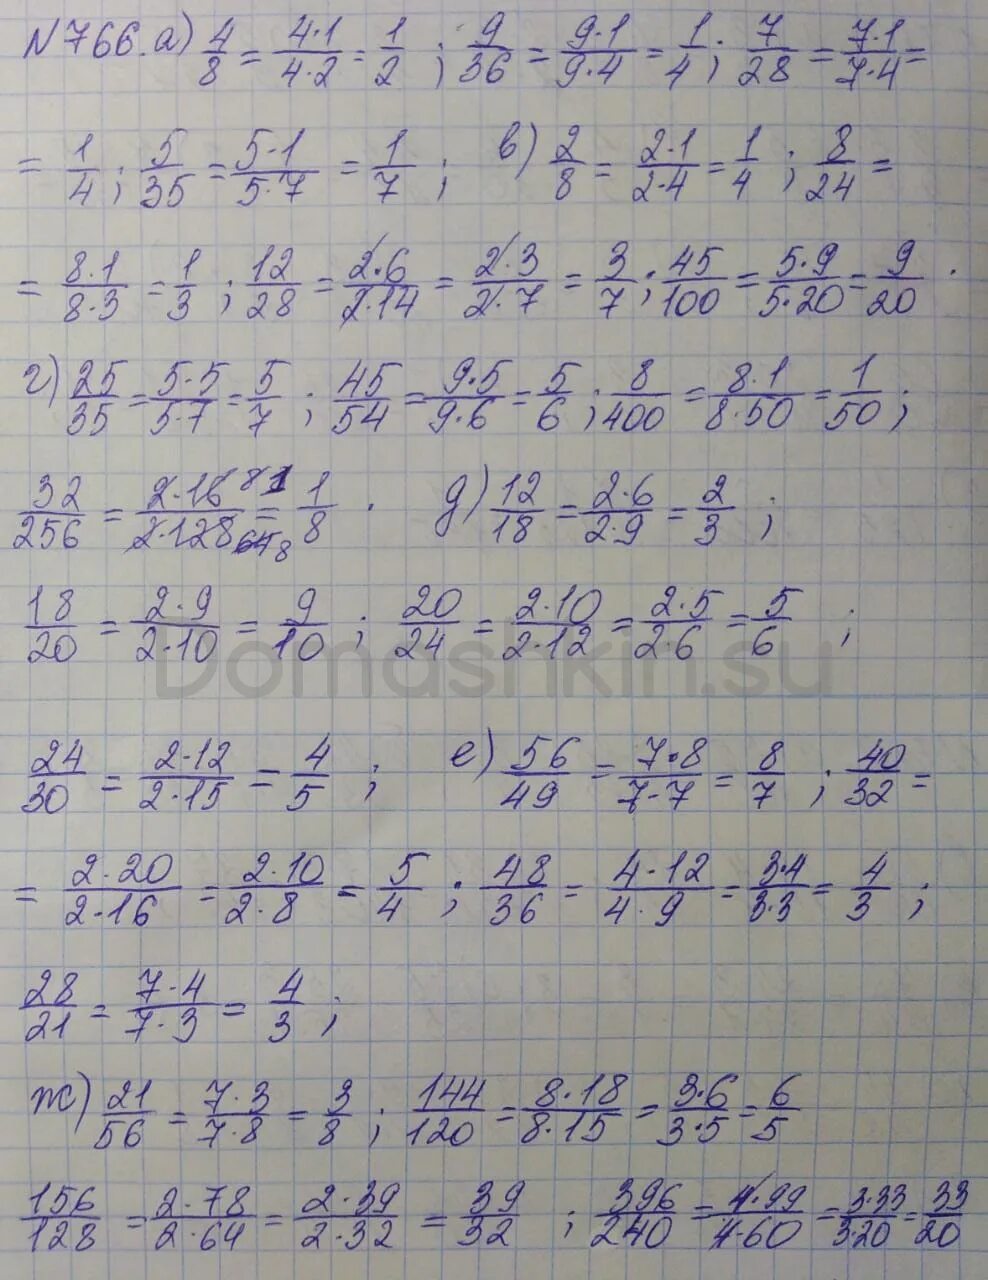 №766. а) 4/8 = 4·1/4·2 = 1/2 ; 9/36 = 9·1/9·4 = 1/4 ; 7/28 = 7·1/7·4 =
= 1/4 ; 5/35 = 5·1/5·7 = 1/7 ; в) 2/8 = 2·1/2·4 = 1/4 ; 8/24 =
= 8·1/8·3 = 1/3 ; 12/28 = 2·6/2·14 = 2·3/2·7 = 3/7 ; 45/100 = 5·9/5·20 = 9/20 .
г) 25/35 = 5·5/5·7 = 5/7 ; 45/54 = 9·5/9·6 = 5/6 ; 8/400 = 8·1/8·50 = 1/50 ;
32/256 = 2·16 8 1/2·128 64 8 = 1/8 . д) 12/18 = 2·6/2·9 = 2/3 ;
18/20 = 2·9/2·10 = 9/10 ; 20/24 = 2·10/2·12 = 2·5/2·6 = 5/6 ;
Domashkin.su
24/30 = 2·12/2·15 = 4/5 ; е) 56/49 = 7·8/7·7 = 8/7 ; 40/32 =
= 2·20/2·16 = 2·10/2·8 = 5/4 ; 48/36 = 4·12/4·9 = 3·4/3·3 = 4/3 ;
28/21 = 7·4/7·3 = 4/3 ;
ж) 21/56 = 7·3/7·8 = 3/8 ; 144/120 = 8·18/8·15 = 3·6/3·5 = 6/5
156/128 = 2·78/2·64 = 2·39/2·32 = 39/32 ; 396/240 = 4·99/4·60 = 3·33/3·20 = 33/20